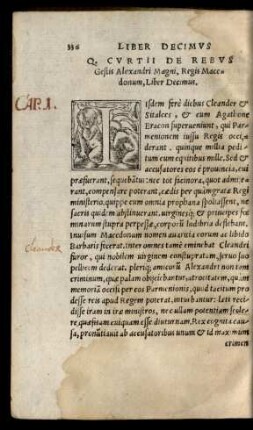 336 LIBER DECIMVS
Q. CVRTII DE REBVS
Gestis Alexandri Magni, Regis Mace-
donum, Liber Decimus.
CAP. I.
Iisdem ferè diebus Cleander &
Sitalces, & cum Agathone
Eracon superueniunt, qui Par-
menionem iussu Regis occi-
derant. quinque millia pedi-
tum cum equitibus mille. Sed &
accusatores eos è prouincia, cui
præfuerant, sequebãtur: nec tot facinora, quot admise-
rant, compensare poterant, cædis per quàm gratæ Regi
ministerio. quippe cum omnia prophana spoliassent, ne
sacris quidem abstinuerant. uirginesq; & principes fœ-
minarum stupra perpessæ, corporũ ludibria deflebant.
Inuisum Macedonum nomen auaritia eorum ac libido
Barbaris fecerat. inter omnes tamẽ eminebat Cleandri
Cleander
furor, qui nobilem uirginem constupratam, seruo suo
pellicem dederat. pleriq; amicorũ Alexandri non tam
criminum, quæ palam obijciebantur, atrocitatem, quàm
memoriã occisi per eos Parmenionis, quod tacitum pro
desse reis apud Regem poterat, intuebantur: lati reci-
disse iram in iræ ministros, nec ullam potentiam scele-
re quæsitam cuiquam esse diuturnam. Rex cognita cau-
sa, pronũtiauit ab accusatoribus unum & id maximum
crimen